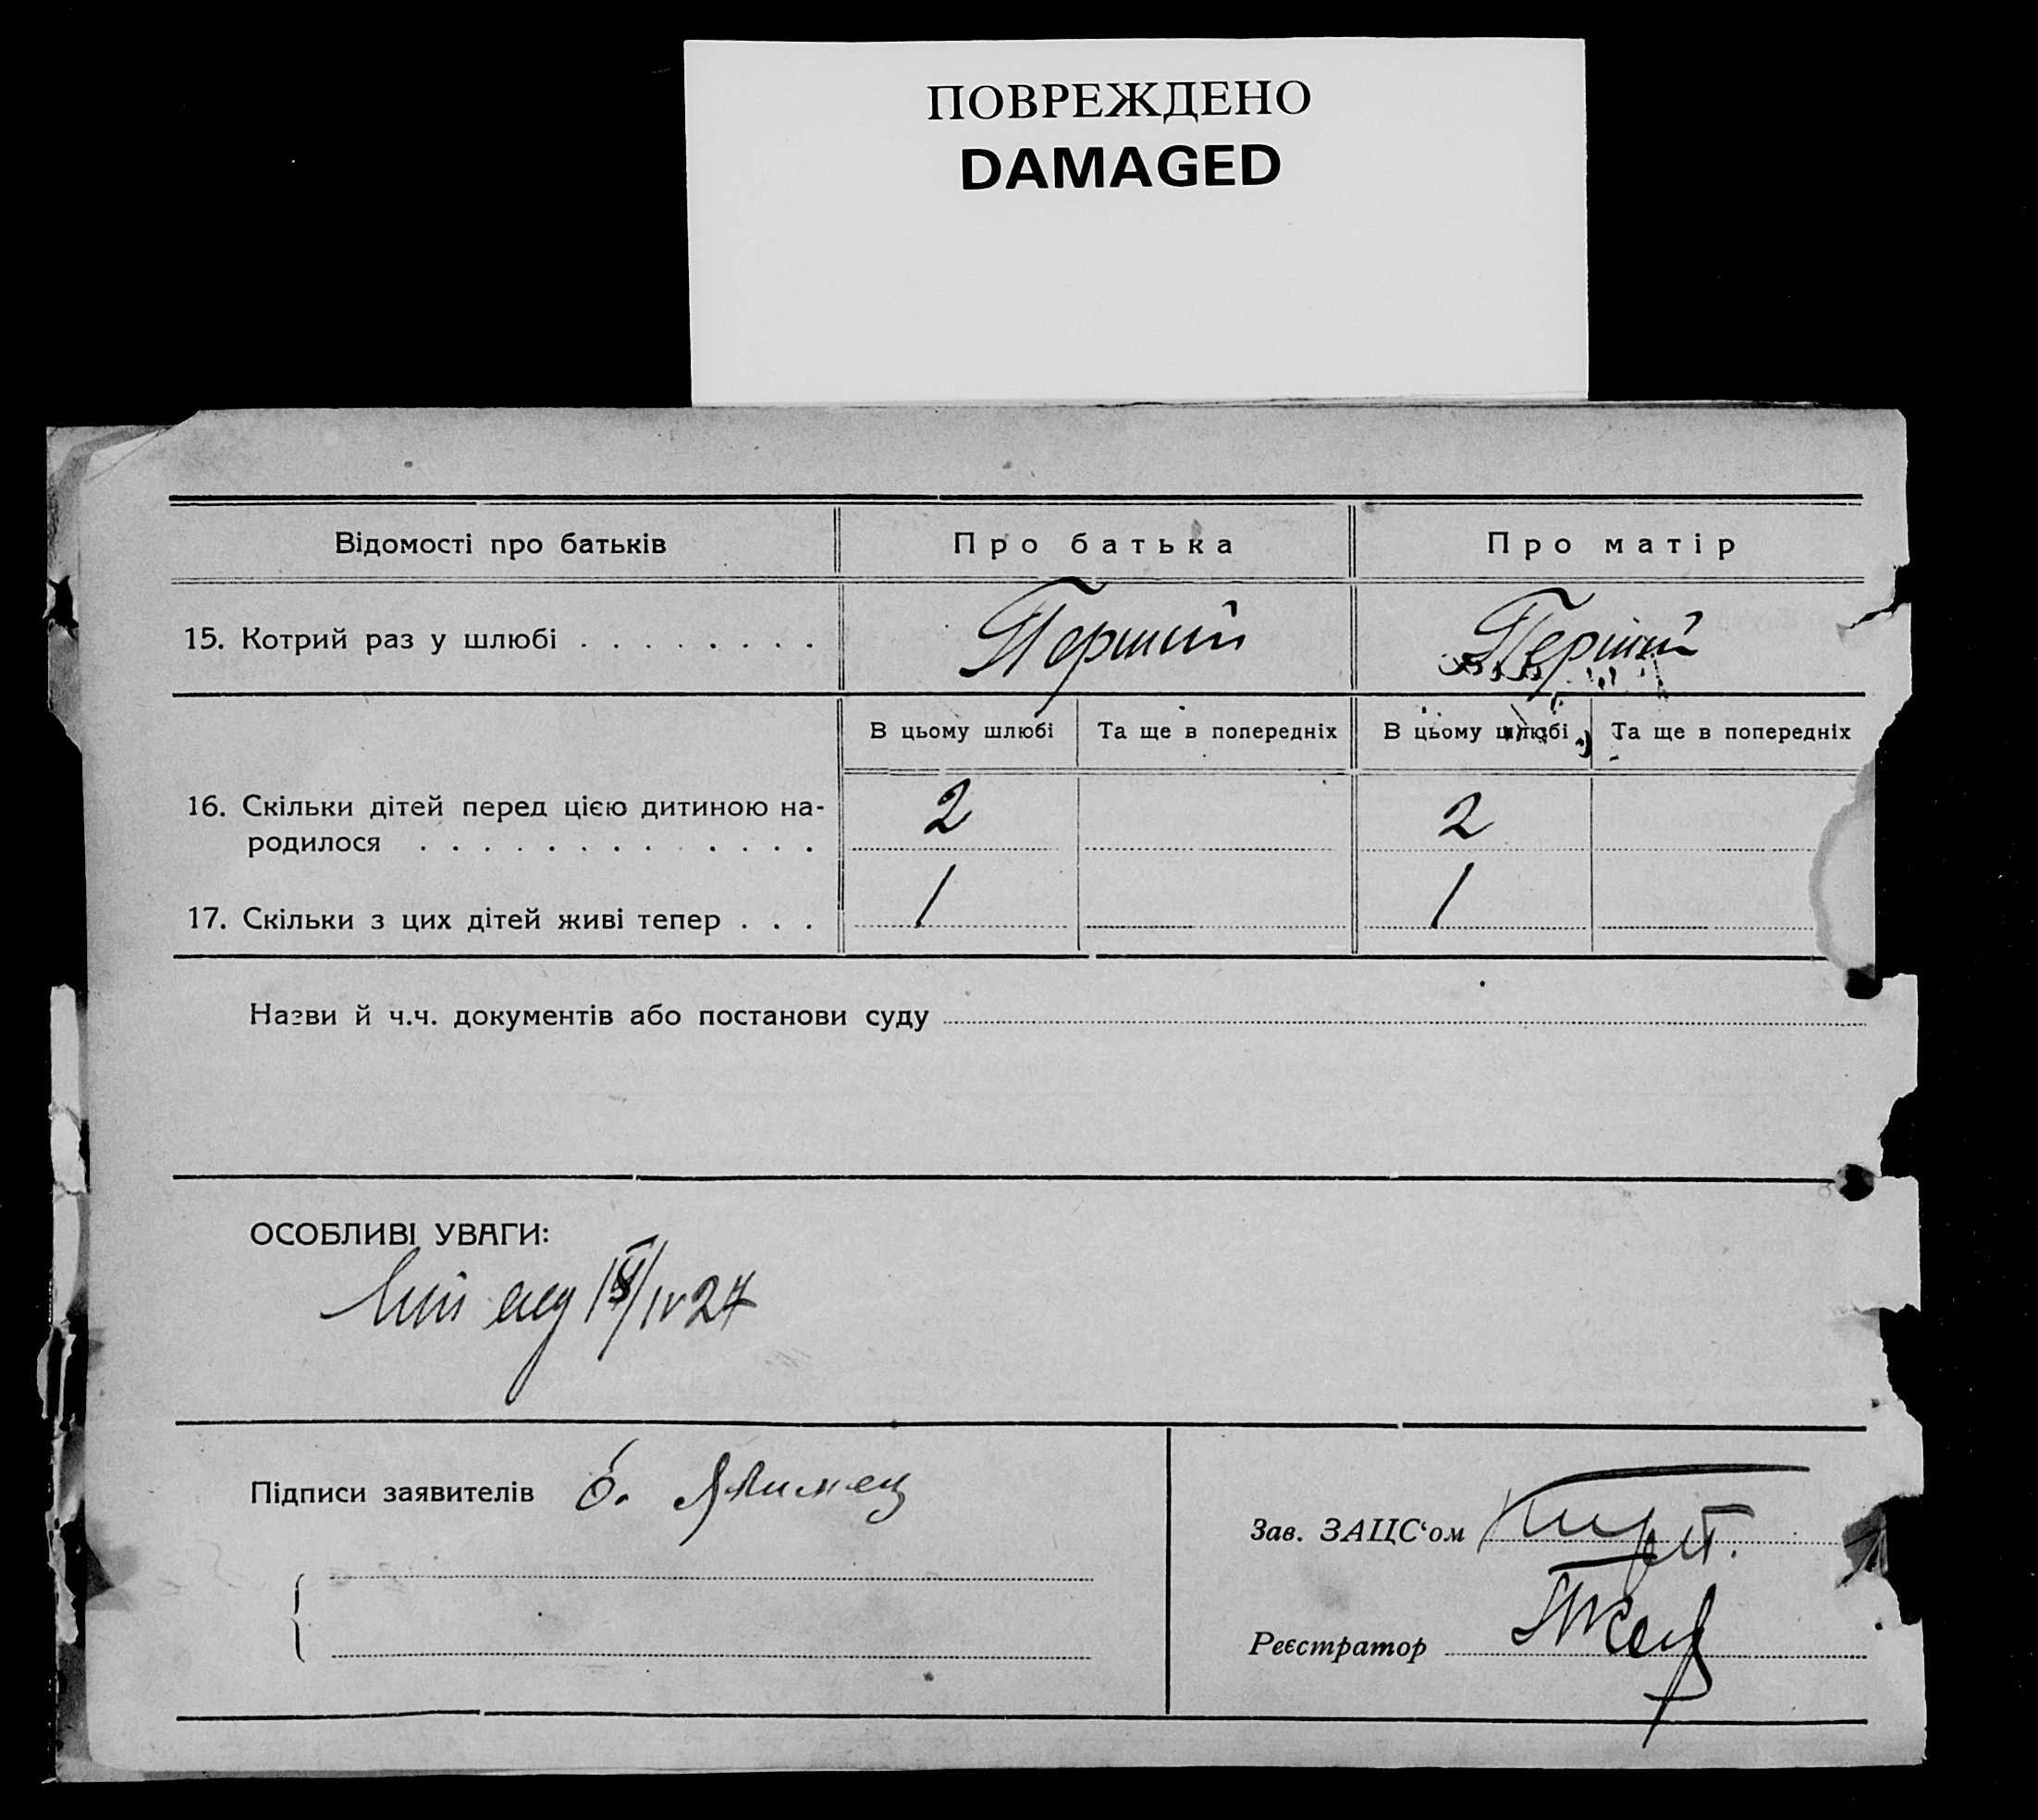 ПОВРЕЖДЕНО
DAMAGED
Відомості про батьків
Про батька
Про матір
15. Котрий раз у шлюбі . . . . . . . .
Перший
Перший
В цьому шлюбі
Та ще в попередніх
В цьому шлюбі
Та ще в попередніх
16. Скільки дітей перед цією дитиною на-
родилося . . . . . . . . . . . . .
2
2
17. Скільки з цих дітей живі тепер . . .
1
1
Назви й ч.ч. документів або постанови суду
ОСОБЛИВІ УВАГИ:
/IV 27
Підписи заявителів
Зав. ЗАЦС‘ом
Реєстратор